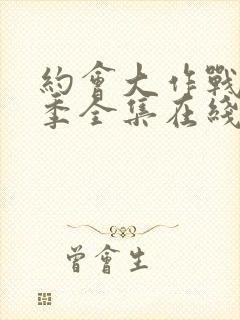 約會大作戰
季全集在綫
曾會生